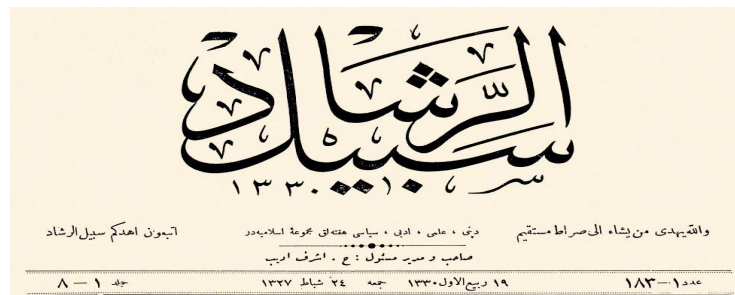 سبيل الرشاد
سر ١٣٣٠
والله يهدى من يشاء الى صراط مستقيم
دينى ، علمى ، ادبى ، سياسى هفته‌لق مجموعهٔ اسلاميه‌در
اتبعون اهدكم سبيل الرشاد
صاحب و مدير مسئول : ح . اشرف اديب
عدد ١ — ١٨٣
١٩ ربيع الاول ١٣٣٠ جمعه ٢٤ شباط ١٣٢٧
جلد ١ — ٨